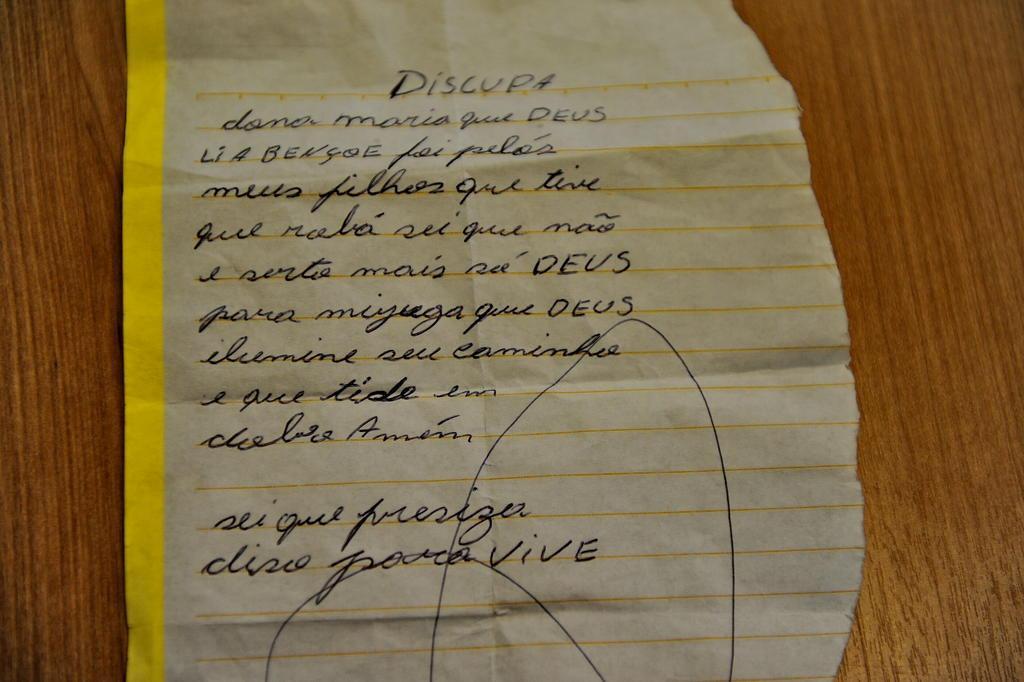 DISCUPA
dona maria que DEUS
LI A BENÇOE foi pelós
meus filhos que tive
que robá sei que não
e serto mais só DEUS
para mijuga que DEUS
ilumine seu caminho
e que ti de em
dobro Amém
sei que presiza
diso para VIVE